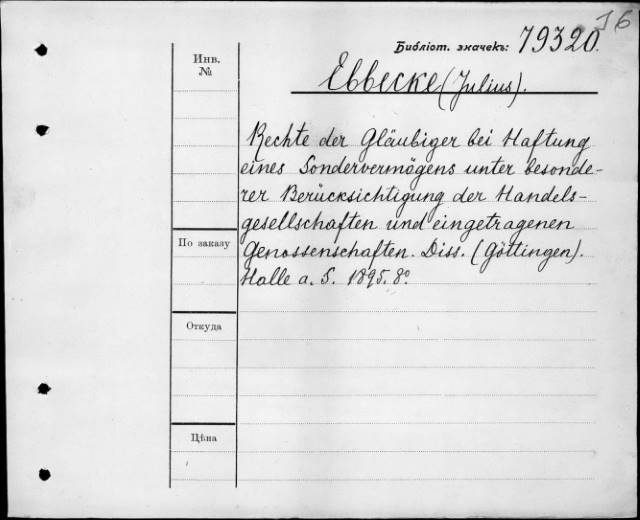 J6
Библіот. значекъ: 79320.
Инв.
№
Ebbecke (Julius).
Rechte der Gläubiger bei Haftung
eines Sondervermögens unter besonde-
rer Berücksichtigung der Handels-
gesellschaften und eingetragenen
Genossenschaften. Diss. (Göttingen).
Halle a. S. 1895. 8°
По заказу
Откуда
Цѣна